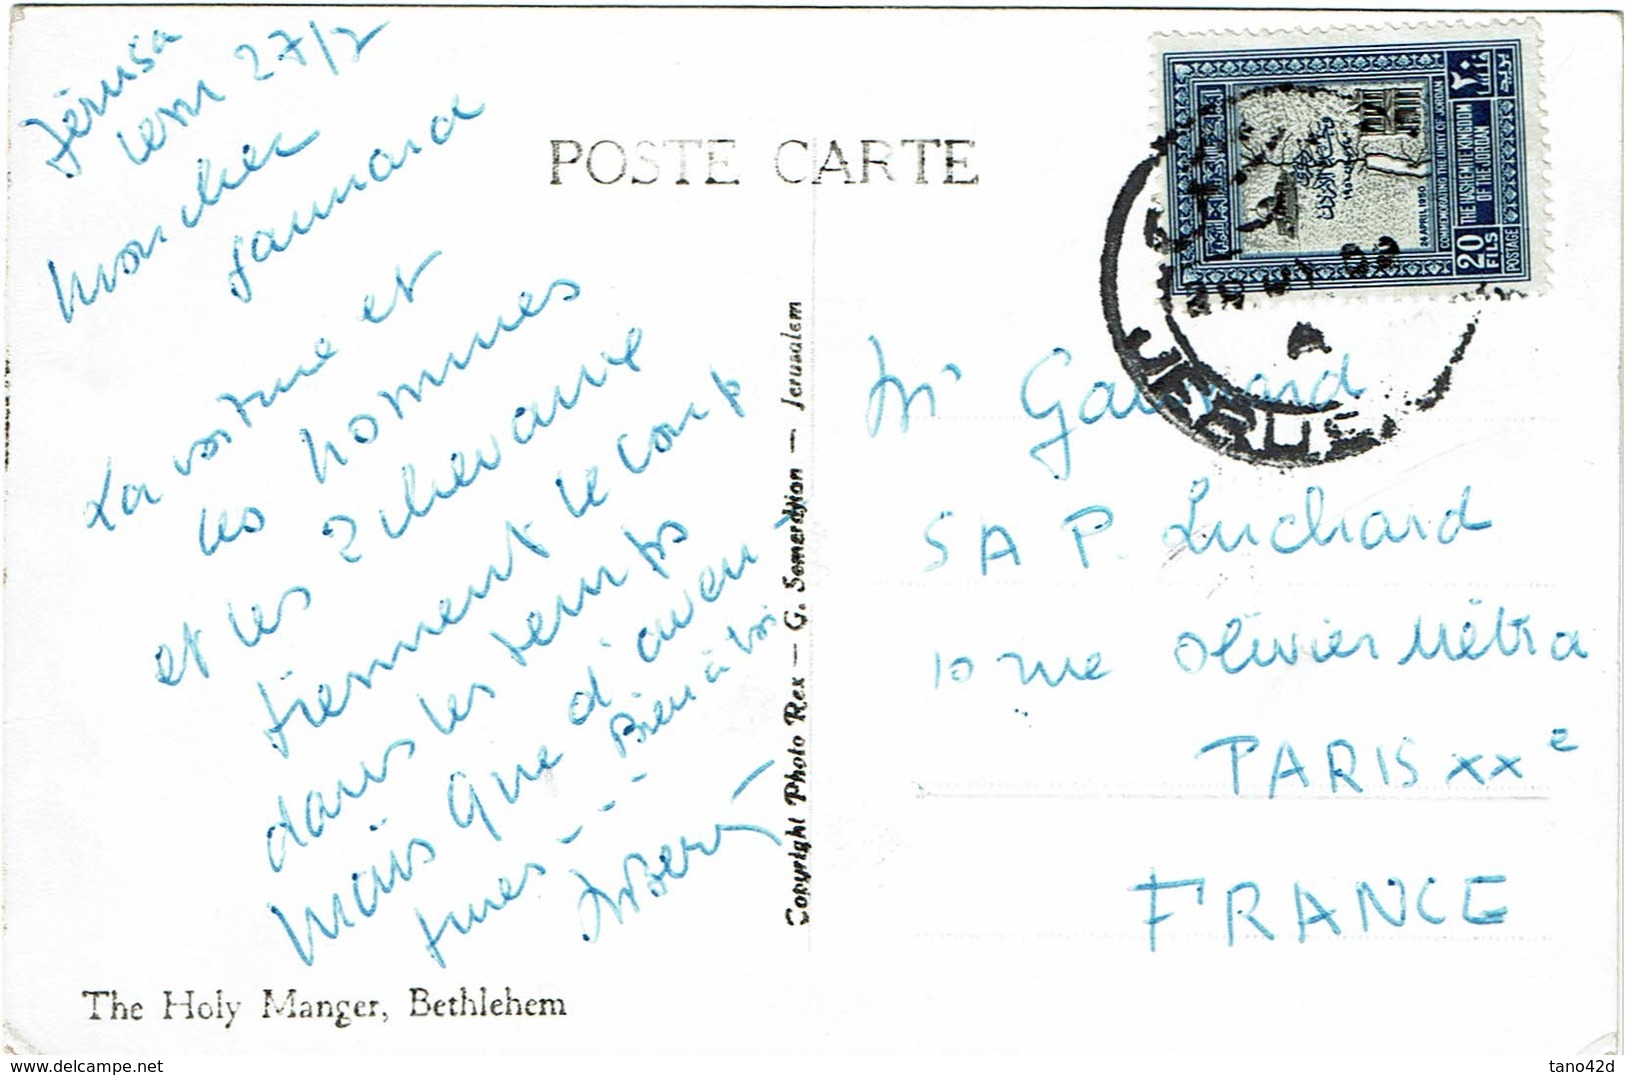 Jérusa
lem 27/2
mon cher
gaumard
La voiture et
les hommes
et les 2 chevaux
tiennent le coup
dans les temps
mais que d'aven
tures - - - -
Bien à toi
POSTE CARTE
Copyright Photo Rex — G. Somerdjian — Jerusalem
The Holy Manger, Bethlehem
COMMEMORATING THE UNITY OF JORDAN
24 APRIL 1950
THE HASHEMITE KINGDOM
OF THE JORDAN
20 FILS
POSTAGE
٢٠
JERUS
Mr Gaumard
SAP. Luchard
10 rue Olivier Métra
PARIS XXe
FRANCE
www.delcampe.net
tano42d